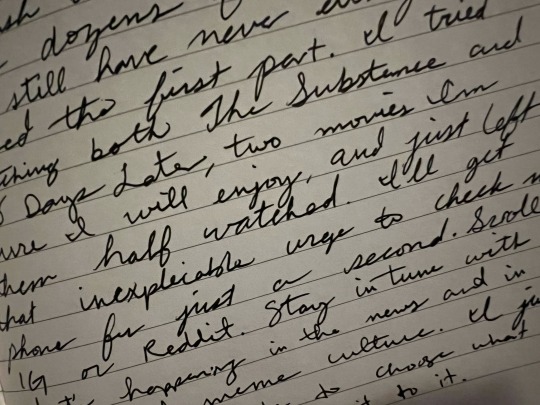 dozens
still have never
the first part. I tried
both The Substance and
Days Later, two movies I'm
I will enjoy, and just left
them half watched. I'll get
that inexplicable urge to check
phone for just a second. Scroll
IG or Reddit. Stay in tune with
happening in the news and in
meme culture. I
to choose what
it to it.